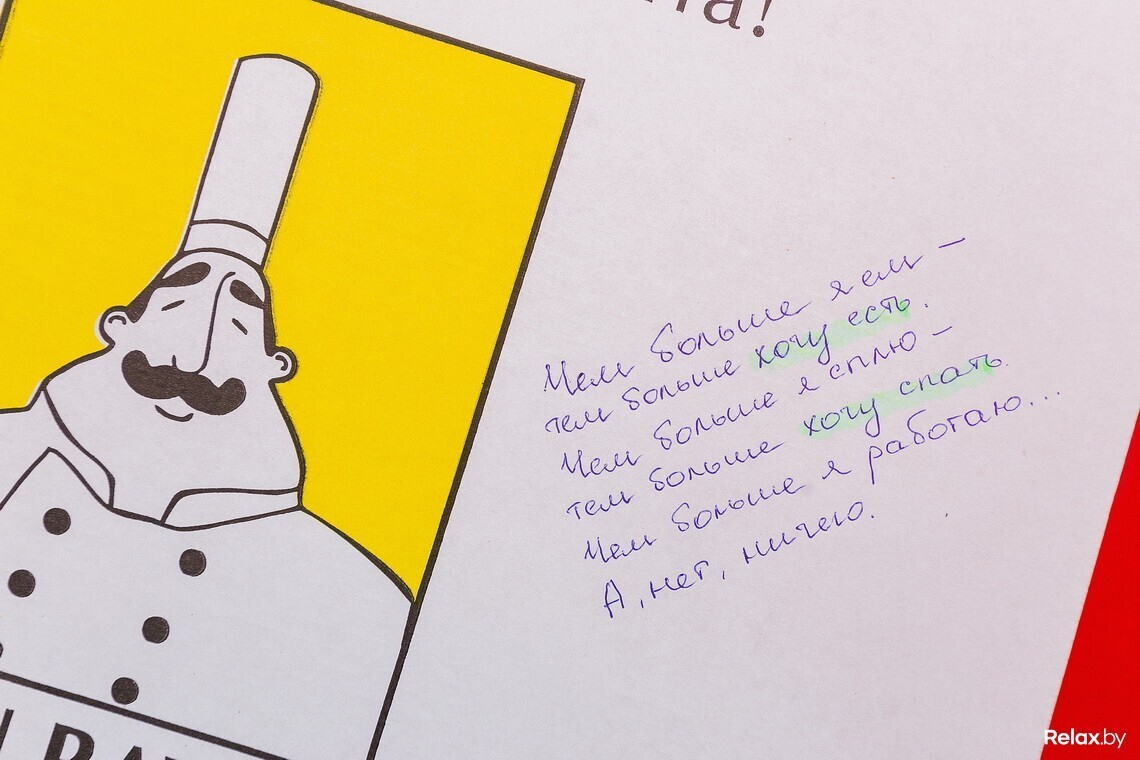 Чем больше я ем –
тем больше хочу есть.
Чем больше я сплю –
тем больше хочу спать.
Чем больше я работаю...
А, нет, ничего.
Relax.by